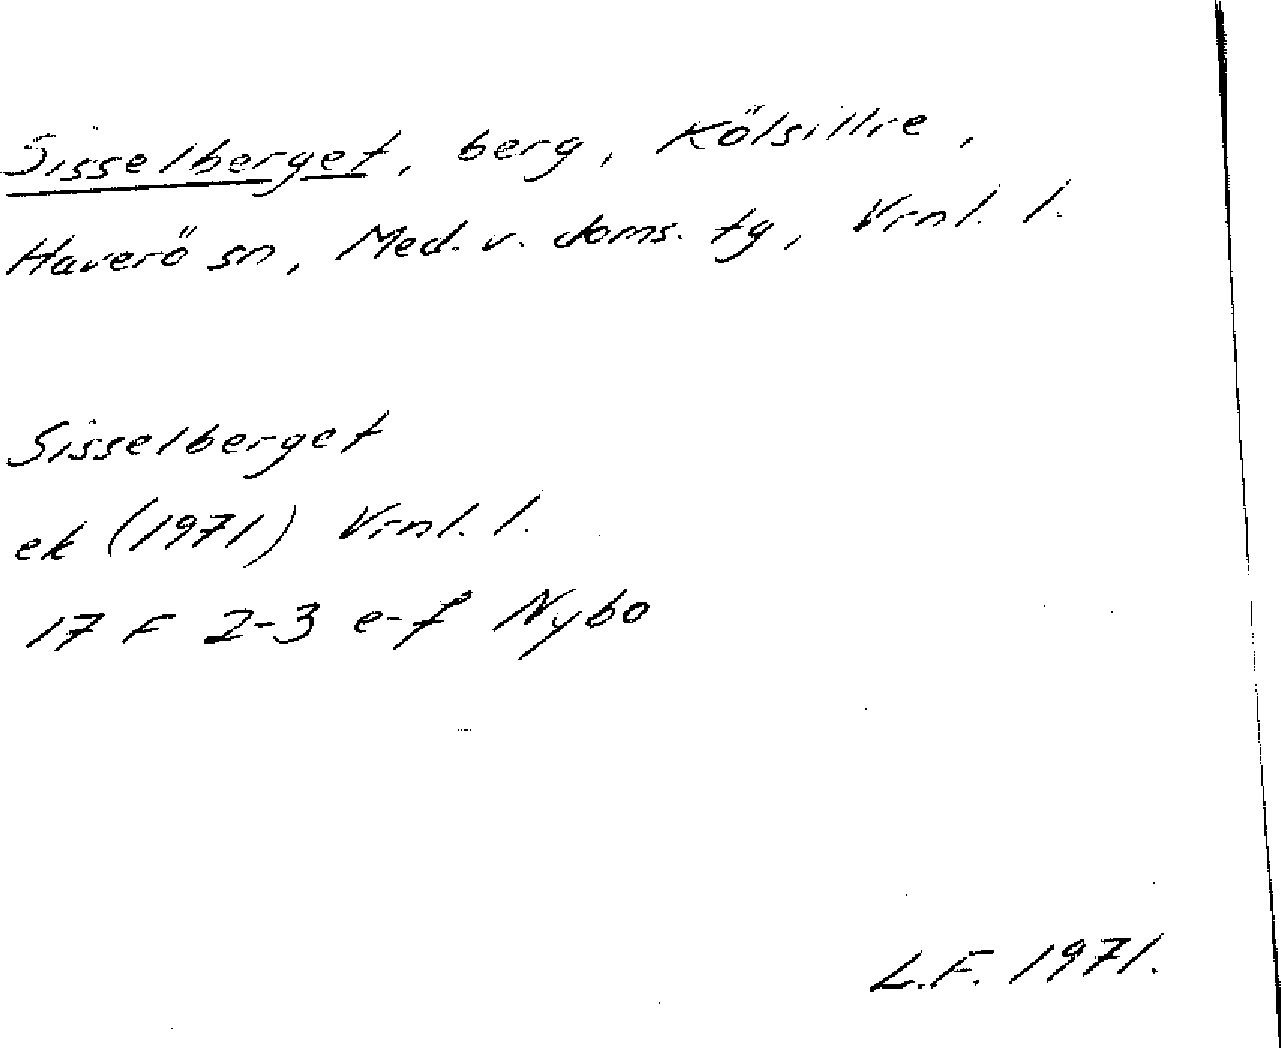 Sisselberget, berg, Kölsillre,
Haverö sn, Med. v. doms. tg, Vrnl. l.
Sisselberget
ek (1971) Vrnl. l.
17 F 2-3 e-f Nybo
L.F. 1971.